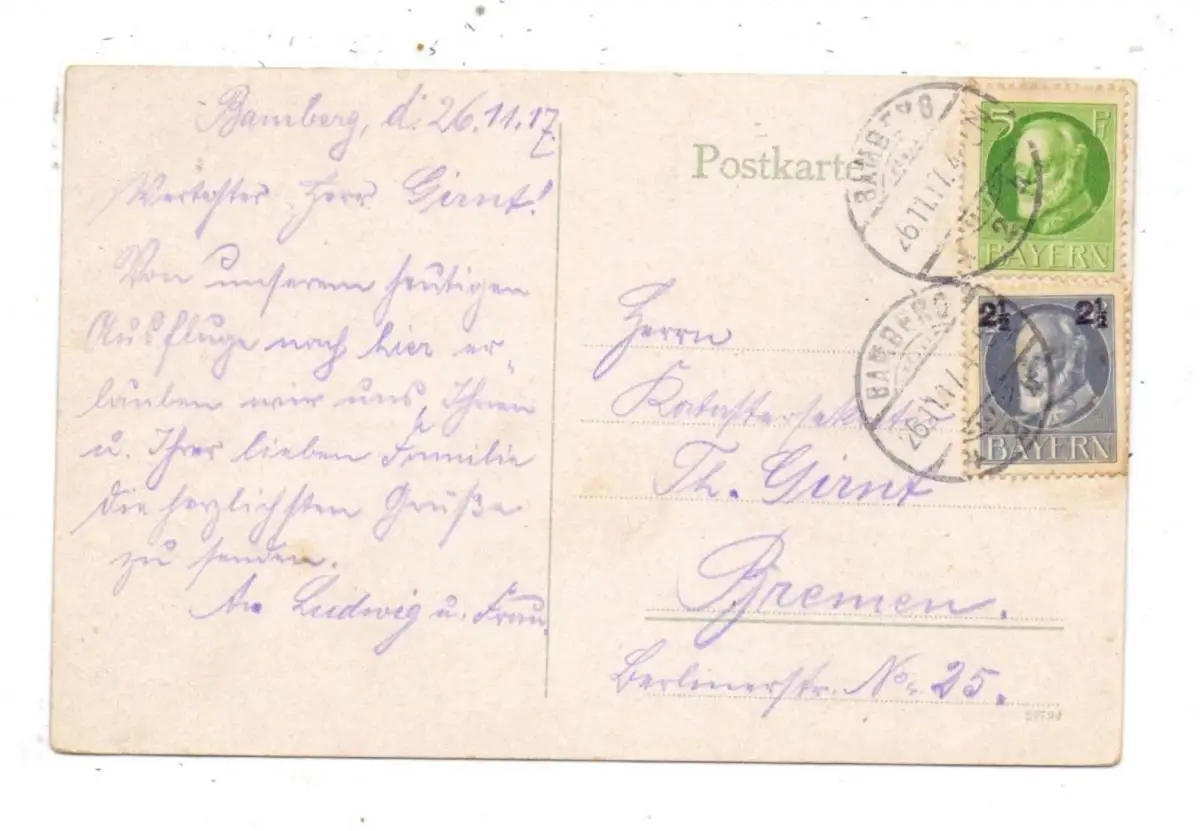 Bamberg, d. 26.11.17.
Wertester Herr Girnt!
Von unserem heutigen
Ausfluge nach hier er-
lauben wir uns, Ihnen
u. Ihrer lieben Familie
die herzlichsten Grüße
zu senden.
Ludwig u. Frau.
Postkarte
Herrn
Katastersekretär
Th. Girnt
Bremen.
Berlinerstr. No. 25.
BAMBERG
26.11.17.4
5 Pf
BAYERN
BAMBERG
26.11.17.4
2½ 2½
BAYERN